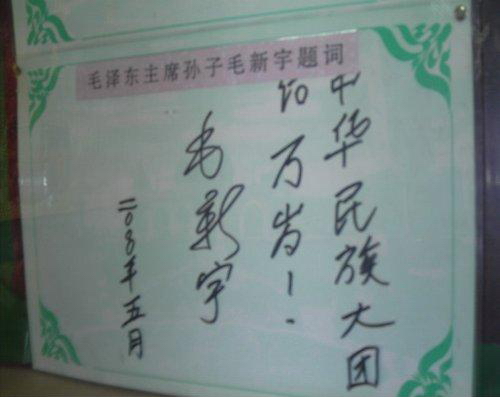 毛泽东主席孙子毛新宇题词
中华民族大团
结万岁！
毛新宇
年五月